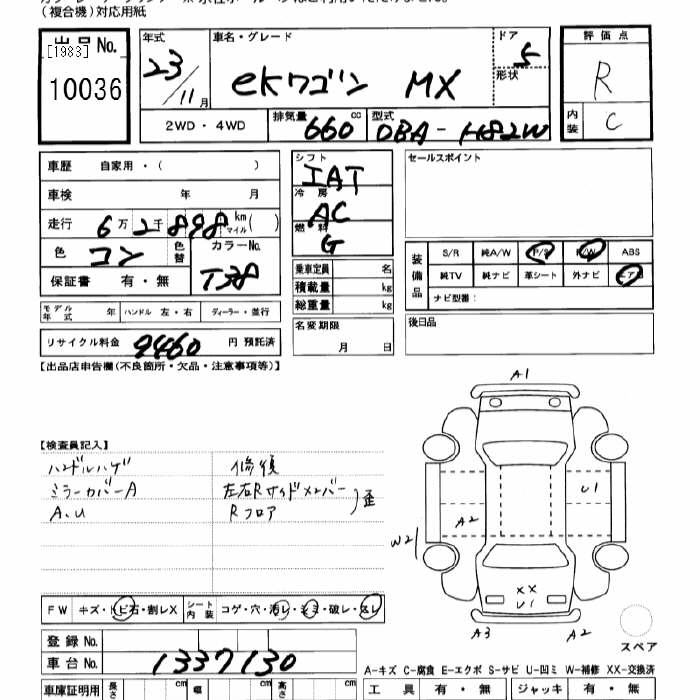 (複合機)対応用紙
出品No. [1983] 10036
年式 23/11月
車名・グレード eKワゴン MX
ドア 5
形状
評価点 R
内装 C
2WD・4WD
排気量 660 cc
型式 DBA-H82W
車歴 自家用・( )
車検 年 月
走行 6万2千898km マイル( )
色 コン 色替 カラーNo. T38
保証書 有・無
シフト IAT
冷房 AC
燃料 G
乗車定員 名
積載量 kg
総重量 kg
セールスポイント
装備品 S/R 純A/W P/S P/W ABS
純TV 純ナビ 革シート 外ナビ エアB
ナビ型番:
モデル年式 年 ハンドル 左・右 ディーラー・並行
名変期限 月 日
後日品
リサイクル料金 9460 円 預託済
【出品店申告欄(不良箇所・欠品・注意事項等)】
【検査員記入】
ハンドルハゲ
ミラーカバーA
A、U
修復
左右Rサイドメンバー
Rフロア
歪
A1
U1
A2
W2
XX
U1
A3
A2
スペア
FW キズ・トビ石・割レX シート内装 コゲ・穴・汚レ・シミ・破レ・スレ
登録No.
車台No. 1337130
A-キズ C-腐食 E-エクボ S-サビ U-凹ミ W-補修 XX-交換済
車庫証明用 長さ cm 幅 cm 高さ cm
工具 有・無 ジャッキ 有・無